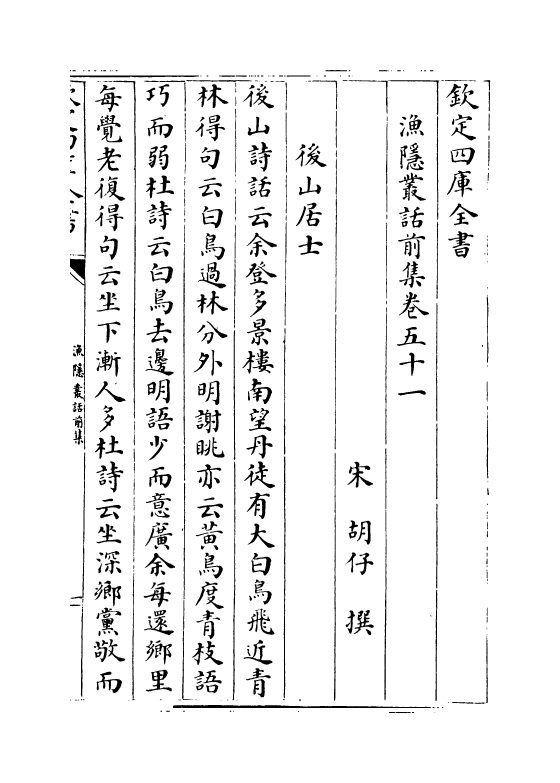 欽定四庫全書
漁隱叢話前集卷五十一
宋 胡仔 撰
後山居士
後山詩話云余登多景樓南望丹徒有大白鳥飛近青
林得句云白鳥過林分外明謝眺亦云黃鳥度青枝語
巧而弱杜詩云白鳥去邊明語少而意廣余每還鄉里
每覺老復得句云坐下漸人多杜詩云坐深鄉黨敬而
漁隱叢話前集